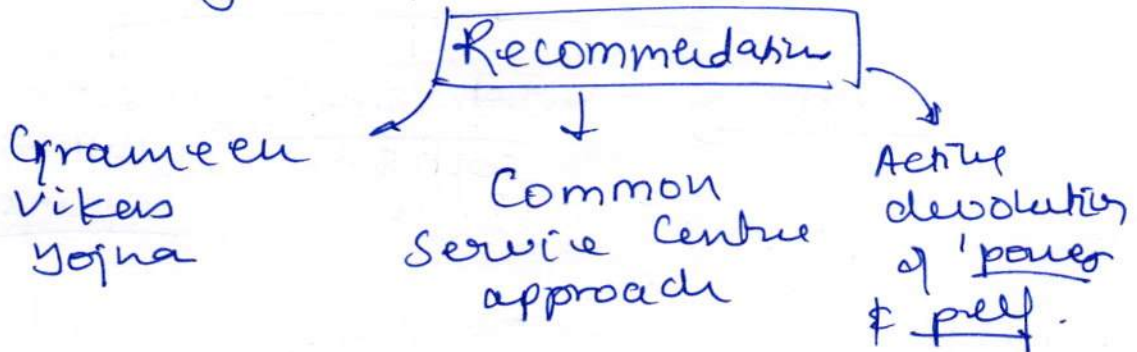 Recommedation
Grameen
Vikas
Yojna
Common
Service Centre
approach
Active
devolution
of 'power
& pelf.